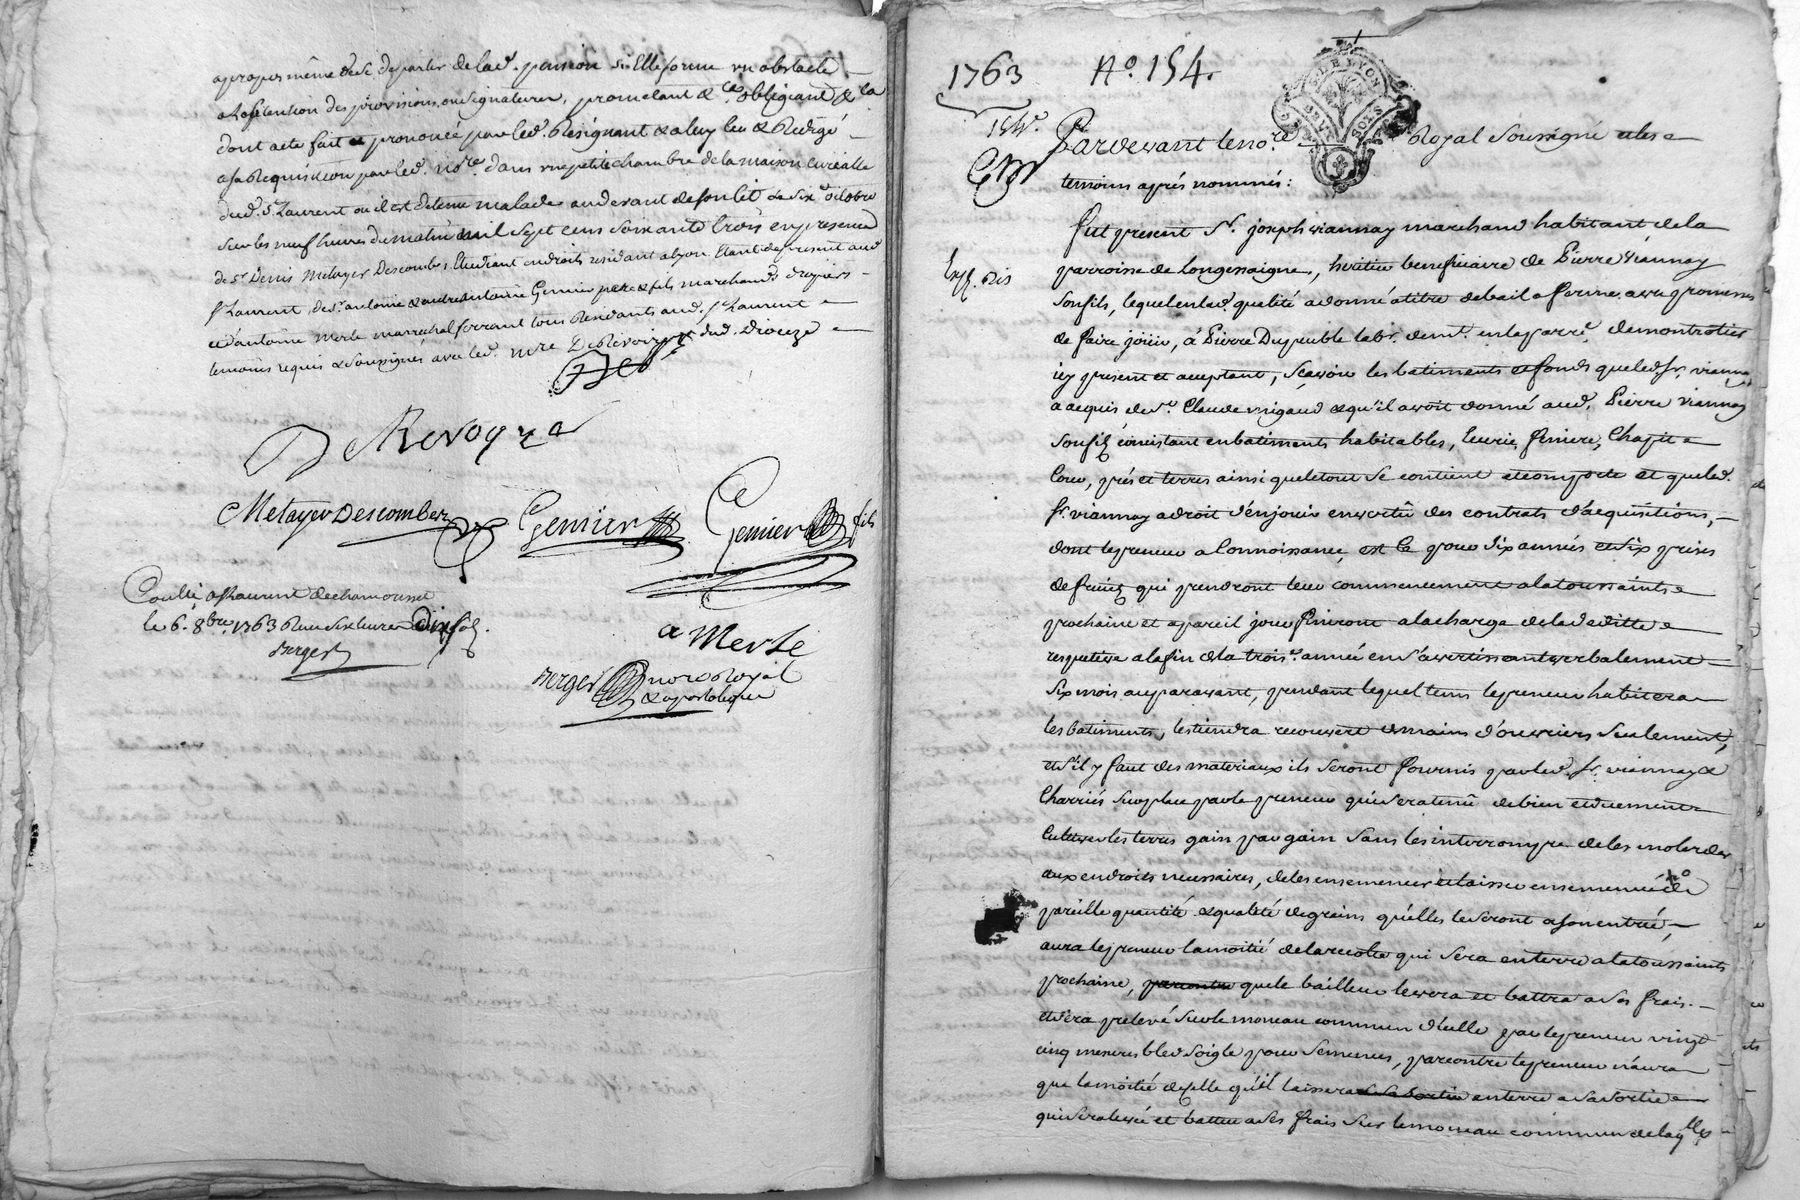 apropos même de se departir de lad. pension si Elle forme un obstacle
a lobtention des provisions, ou signatures, promettant &ca. obligeant &ca
dont acte fait et prononcé par led. Resignant & a luy leu & Redigé
a sa Requisition par led. nore. dans une petite chambre de la maison curialle
dud. St Laurent ou il est detenu malade au devant de son lit le six octobre
sur les neuf heures du matin mil sept cens soixante trois en presence
de sr. Denis Metayer Descombes Etudiant en droits residant a Lyon Etant de present aud
st Laurent, de sr. antoine & autre antoine Gemier pere & fils marchands drapiers
et d'antoine Merle marechal ferrant tous Residants aud. st Laurent
temoins requis & soussignés avec led. mre De Revoire dud. Diouze
De Revoyre
Metayer Descombes Gemier Gemier fils
Coullé a st Laurent de chamousset
le 6. 8bre. 1763 Reçu six livres dix sols.
Berger
a Merle
Berger nore Royal
& apostolique
1763 No. 154.
GEN. DE LYON
DEUX SOLS
154e.
Pardevant le nore. Royal soussigné et les
temoins après nommés:
Fut present Sr. joseph viannay marchand habitant de la
Exp. dis
parroisse de Longessaigne, heritier beneficiaire de Pierre viannay
son fils, lequel en lad. qualité a donné a titre de bail a ferme avec promesses
de faire jouir, à Pierre Dupeuble labr. demt. en la parre. de montrotier
icy present et acceptant, Sçavoir les batiments et fonds que led. sr. viannay
a acquis de sr. Claude rigaud & qu'il avoit donné aud. Pierre viannay
son fils consistant en batiments habitables, Ecurie, feniere, Chapit
Cour, prés et terres ainsi que le tout se contient et comporte et que led.
sr. viannay a droit d'en jouir en vertû des contrats d'acquisitions,
dont le preneur a Connoissance, est Ce pour six années et six prises
de fruits qui prendront leur commencement a la toussaints
prochaine et a pareil jour finiront a la charge de la deditte
respective a la fin de la troise. année en s'avertissant verbalement
six mois auparavant, pendant lequel tems le preneur habitera
les batiments, les tiendra recouvert de mains d'ouvriers seulement,
et s'il y faut des materiaux ils seront fournis par led. sr. viannay &
Charriés sur place par le preneur qui sera tenû de bien et duement
Cultiver les terres gain par gain sans les interrompre de les
aux endroits necessaires, de les ensemencer et laisser ensemencé de
pareille quantité & qualité de grains qu'elles le seront a son entrée,
aura le preneur la moitié de la recolte qui sera en terre a la toussaints
prochaine, que le bailleur levera et battra a ses frais.
et sera prelevé sur le monceau commun d'icelle par le preneur vingt
cinq mesures bled soigle pour semences, par contre le preneur n'aura
que la moitié de celle qu'il laissera en terre a sa sortie
qui sera levée et battue a ses frais sur le monceau commun de laqlle